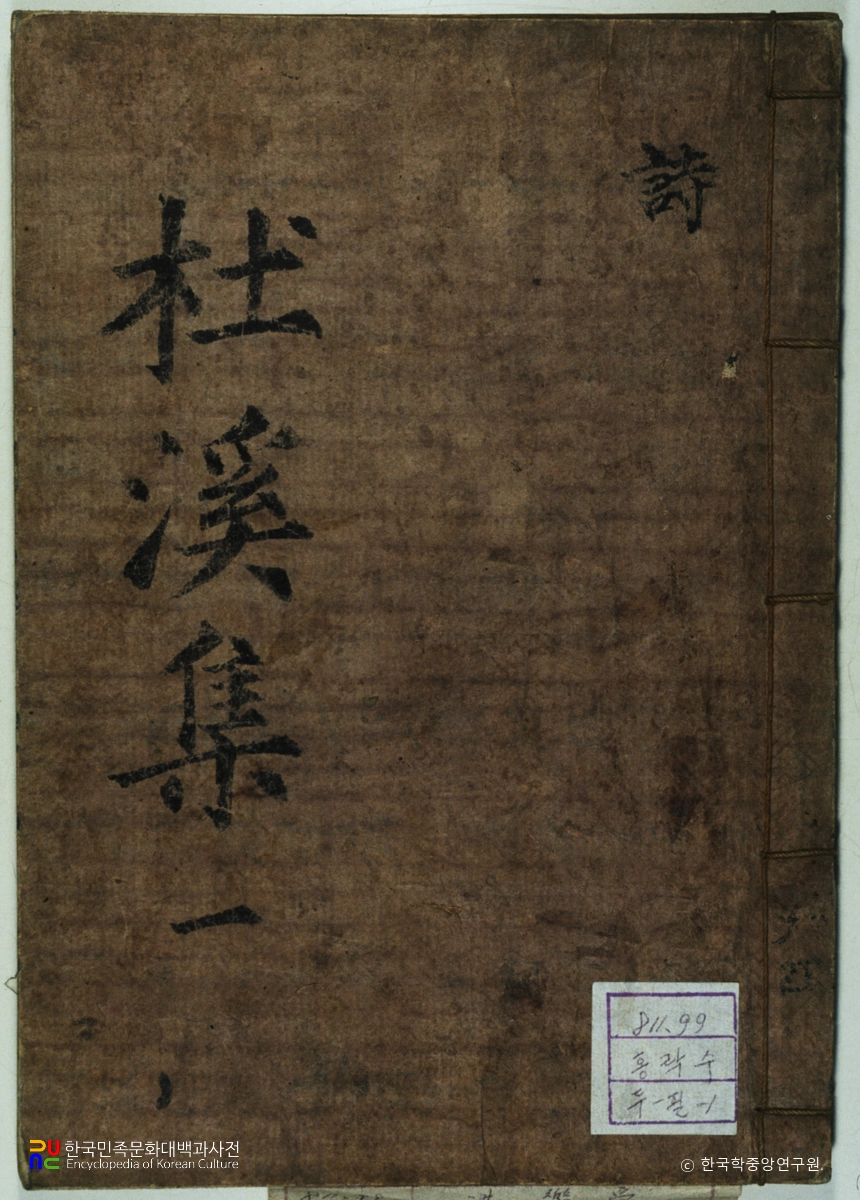 詩
杜溪集 一
811.99
홍락수
두-필-1
한국민족문화대백과사전
Encyclopedia of Korean Culture
ⓒ 한국학중앙연구원